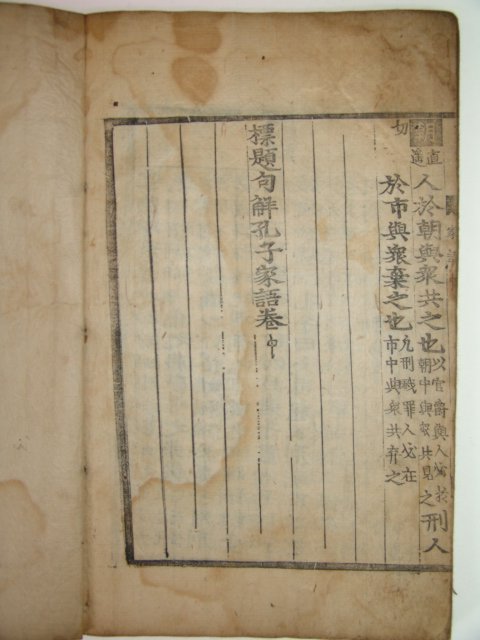 朝
直遙
切
人於朝與衆共之也以官爵與人必於朝中與衆共見之刑人
於市與衆棄之也凡刑戮罪人必在市中與衆共弃之
標題句解孔子家語卷中
家語